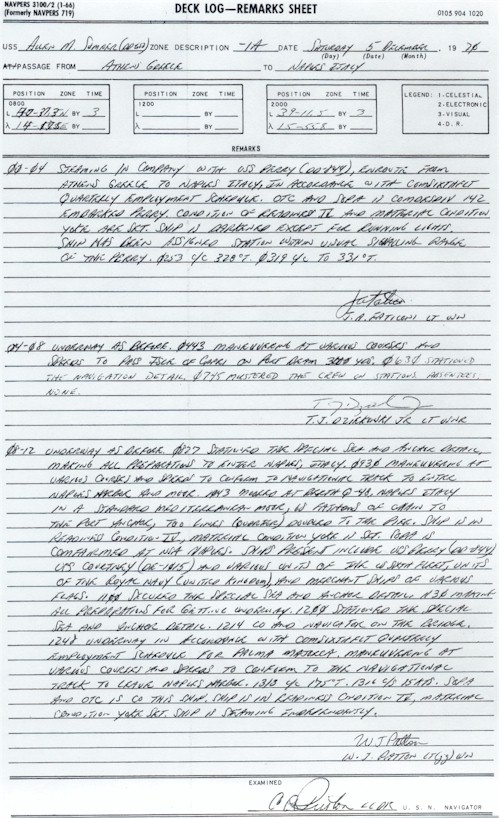 NAVPERS 3100/2 (1-66)
(Formerly NAVPERS 719)
DECK LOG—REMARKS SHEET
0105 904 1020
USS ALLEN M. SUMNER (DD692) ZONE DESCRIPTION -1A DATE SATURDAY 5 DECEMBER 19 70
(Day) (Date) (Month)
AT/PASSAGE FROM ATHENS GREECE TO NAPLES ITALY
POSITION ZONE TIME
0800
L BY 3
λ BY
POSITION ZONE TIME
1200
L BY
λ BY
POSITION ZONE TIME
2000
L 39-11.5 BY 3
λ 15-55E BY
LEGEND: 1-CELESTIAL
2-ELECTRONIC
3-VISUAL
4-D. R.
REMARKS
00-04 STEAMING IN COMPANY WITH USS PERRY (DD-844), ENROUTE FROM
ATHENS GREECE TO NAPLES ITALY, IN ACCORDANCE WITH COMSIXTHFLT
QUARTERLY EMPLOYMENT SCHEDULE. OTC AND SOPA IS COMDESDIV 142
EMBARKED PERRY. CONDITION OF READINESS IV AND MATERIAL CONDITION
YOKE ARE SET. SHIP IS DARKENED EXCEPT FOR RUNNING LIGHTS.
SHIP HAS BEEN ASSIGNED STATION WITHIN VISUAL SIGNALING RANGE
OF THE PERRY. 0253 C/C 328°T 0319 C/C TO 331°T.
J. A. LT USN
04-08 UNDERWAY AS BEFORE. 0443 MANEUVERING AT VARIOUS COURSES AND
SPEEDS TO PASS ISLE OF CAPRI ON PORT BEAM YDS. 0630 STATIONED
THE NAVIGATION DETAIL. 0745 MUSTERED THE CREW ON STATIONS ABSENTEES:
NONE.
T. J. DZIRKOWSKI JR LT USNR
08-12 UNDERWAY AS BEFORE 0827 STATIONED THE SPECIAL SEA AND ANCHOR DETAIL,
MAKING ALL PREPARATIONS TO ENTER NAPLES, ITALY. 0930 MANEUVERING AT
VARIOUS COURSES AND SPEEDS TO CONFORM TO NAVIGATIONAL TRACK TO ENTER
NAPLES HARBOR AND MOOR. MOORED AT BERTH NAPLES ITALY
IN A STANDARD MEDITERRANEAN MOOR, FATHOMS OF CHAIN TO
THE PORT ANCHOR, TWO LINES (QUARTER) DOUBLED TO THE PIER. SHIP IS IN
READINESS CONDITION IV, MATERIAL CONDITION YOKE IS SET. SOPA IS
COMFAIRMED AT NSA NAPLES. SHIPS PRESENT INCLUDE USS PERRY (DD-844)
USS COURTNEY (DE-1015) AND VARIOUS UNITS OF THE SIXTH FLEET, UNITS
OF THE ROYAL NAVY (UNITED KINGDOM), AND MERCHANT SHIPS OF VARIOUS
FLAGS. 1100 SECURED THE SPECIAL SEA AND ANCHOR DETAIL. 1130 MAKING
ALL PREPARATIONS FOR GETTING UNDERWAY. 1200 STATIONED THE SPECIAL
SEA AND ANCHOR DETAIL. 1214 CO AND NAVIGATOR ON THE BRIDGE.
1248 UNDERWAY IN ACCORDANCE WITH COMSIXTHFLT QUARTERLY
EMPLOYMENT SCHEDULE FOR PALMA MANEUVERING AT
VARIOUS COURSES AND SPEEDS TO CONFORM TO THE NAVIGATIONAL
TRACK TO LEAVE NAPLES HARBOR. 1313 C/C 175°T. 1316 C/S 15KTS. SOPA
AND OTC IS CO THIS SHIP. SHIP IS IN READINESS CONDITION IV, MATERIAL
CONDITION YOKE SET. SHIP IS STEAMING INDEPENDENTLY.
W J Patton
W. J. PATTON LT(jg) USN
EXAMINED
LCDR U. S. N. NAVIGATOR